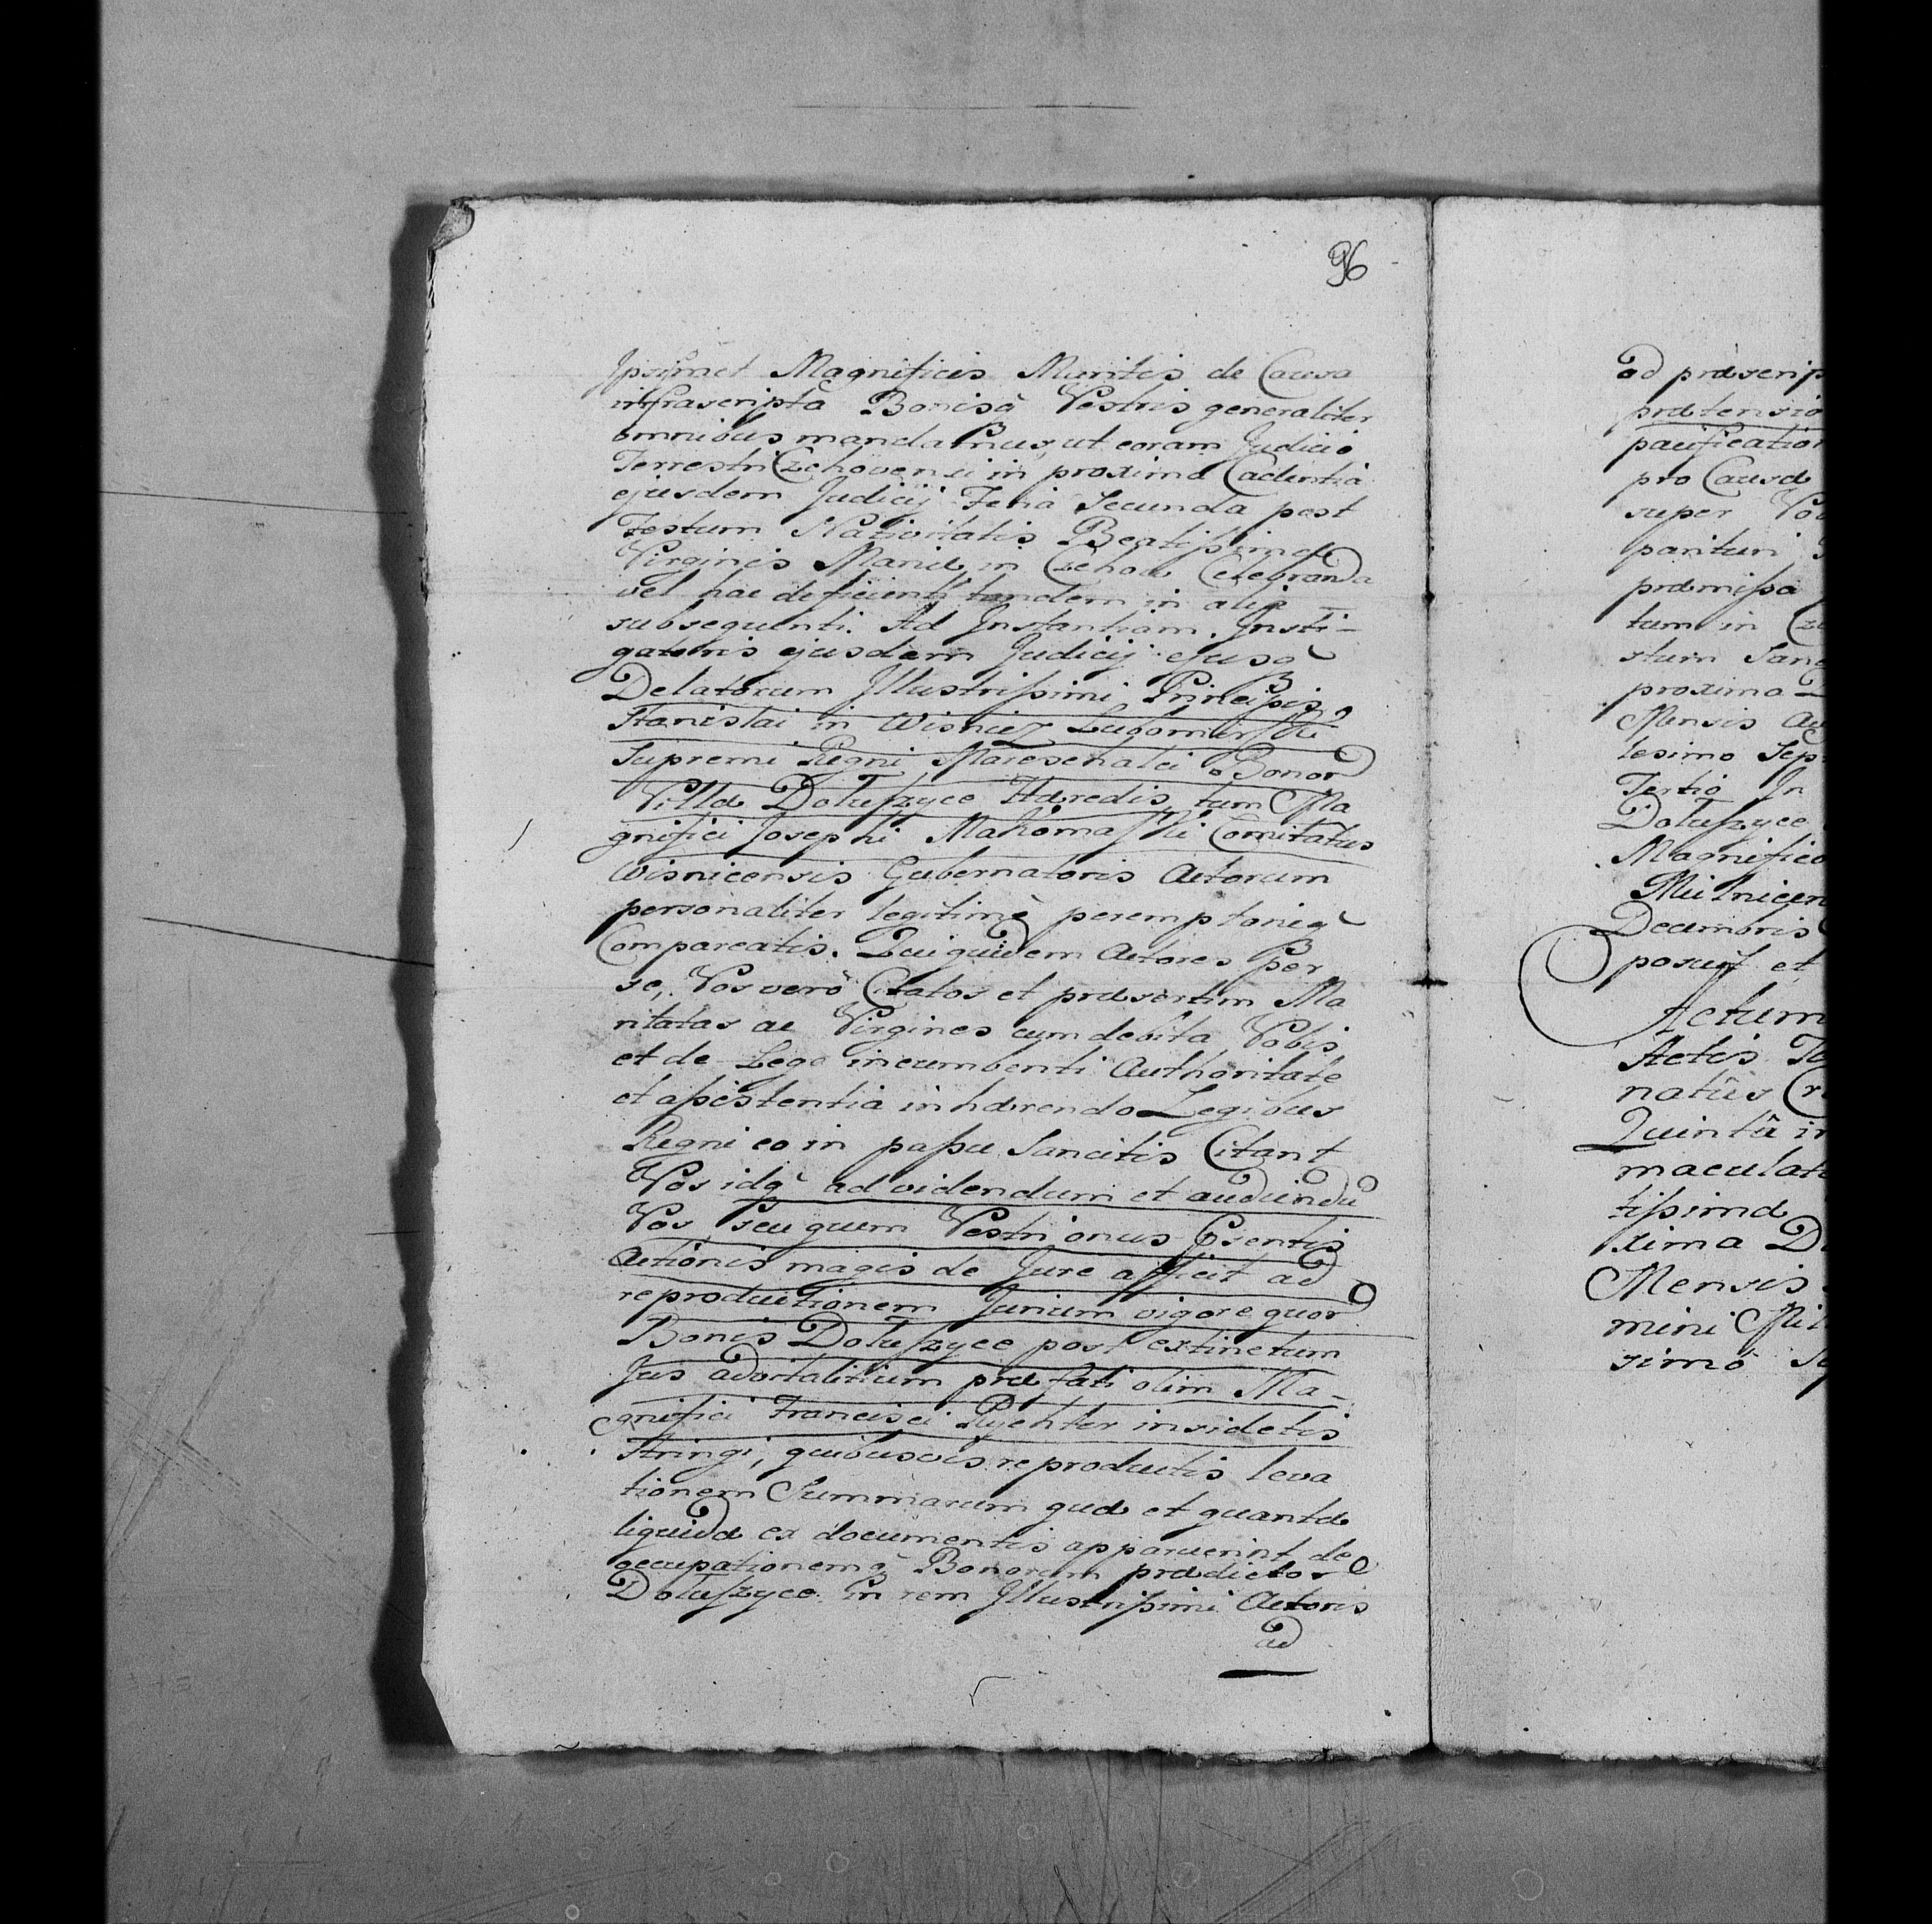 96
Ipsismet Magnificis Maritis de Causa
infrascripta Bonisq̃ Vestris generaliter
omnibus mandamus, ut coram Judicio
Terrestri Czchoviensi in proxima Cadentia
ejusdem Judicij Feria Secunda post
Festum Nativitatis Beatissimæ
Virginis Mariæ in Czchow Celebranda
vel hac deficienti tandem in alia
subsequenti. Ad Instantiam Insti-
gatoris ejusdem Judicij ejusq̃
Delatorum Illustrissimi Principis
Stanislai in Wisnicz Lubomirski
Supremi Regni Mareschalci Bonor
Villæ Doluszyce Hæredis, tum Ma
gnifici Josephi Makomaski Comitatus
Wisnicensis Gubernatoris Actorum
personaliter legitimè peremptorieq̃
Compareatis. Qui quidem Actores per
se, Vos verò Citatos et præsertim Ma
ritatas ac Virgines cum debita Vobis
et de Lege incumbenti Authoritate
et assistentia inhærendo Legibus
Regni eo in passu Sancitis Citant
Vos idq̃ ad videndum et audiendū
Vos seu quem Vestrı onus Psentis
Actionis magis de Jure afficit ad
reproductionem Jurium vigore quor
Bonis Doluszyce post extinctum
Jus advitalitium præfati olim Ma-
gnifici Francisci Rychter insidetis
Stringi, quibusvis reproductis leva
tionem Summarum quæ et quantæ
liquidæ ex documentis apparuerint de
occupationemq̃ Bonorum prædictor
Doluszyce in rem Illustrissimi Actoris
ad
ad præscrip
prætensio
pacification
pro Causæ
super Vo
parituri
præmissa
tum in Cz
stum Sanc
proxima
Mensis Au
lesimo Sep
Tertio In
Doluszyce
Magnifico
Decembris
posuit et
Actum
Actis Te
natûs Cr
Quintâ in
maculatæ
tissimæ
xima D
Mensis
mini Mil
simô